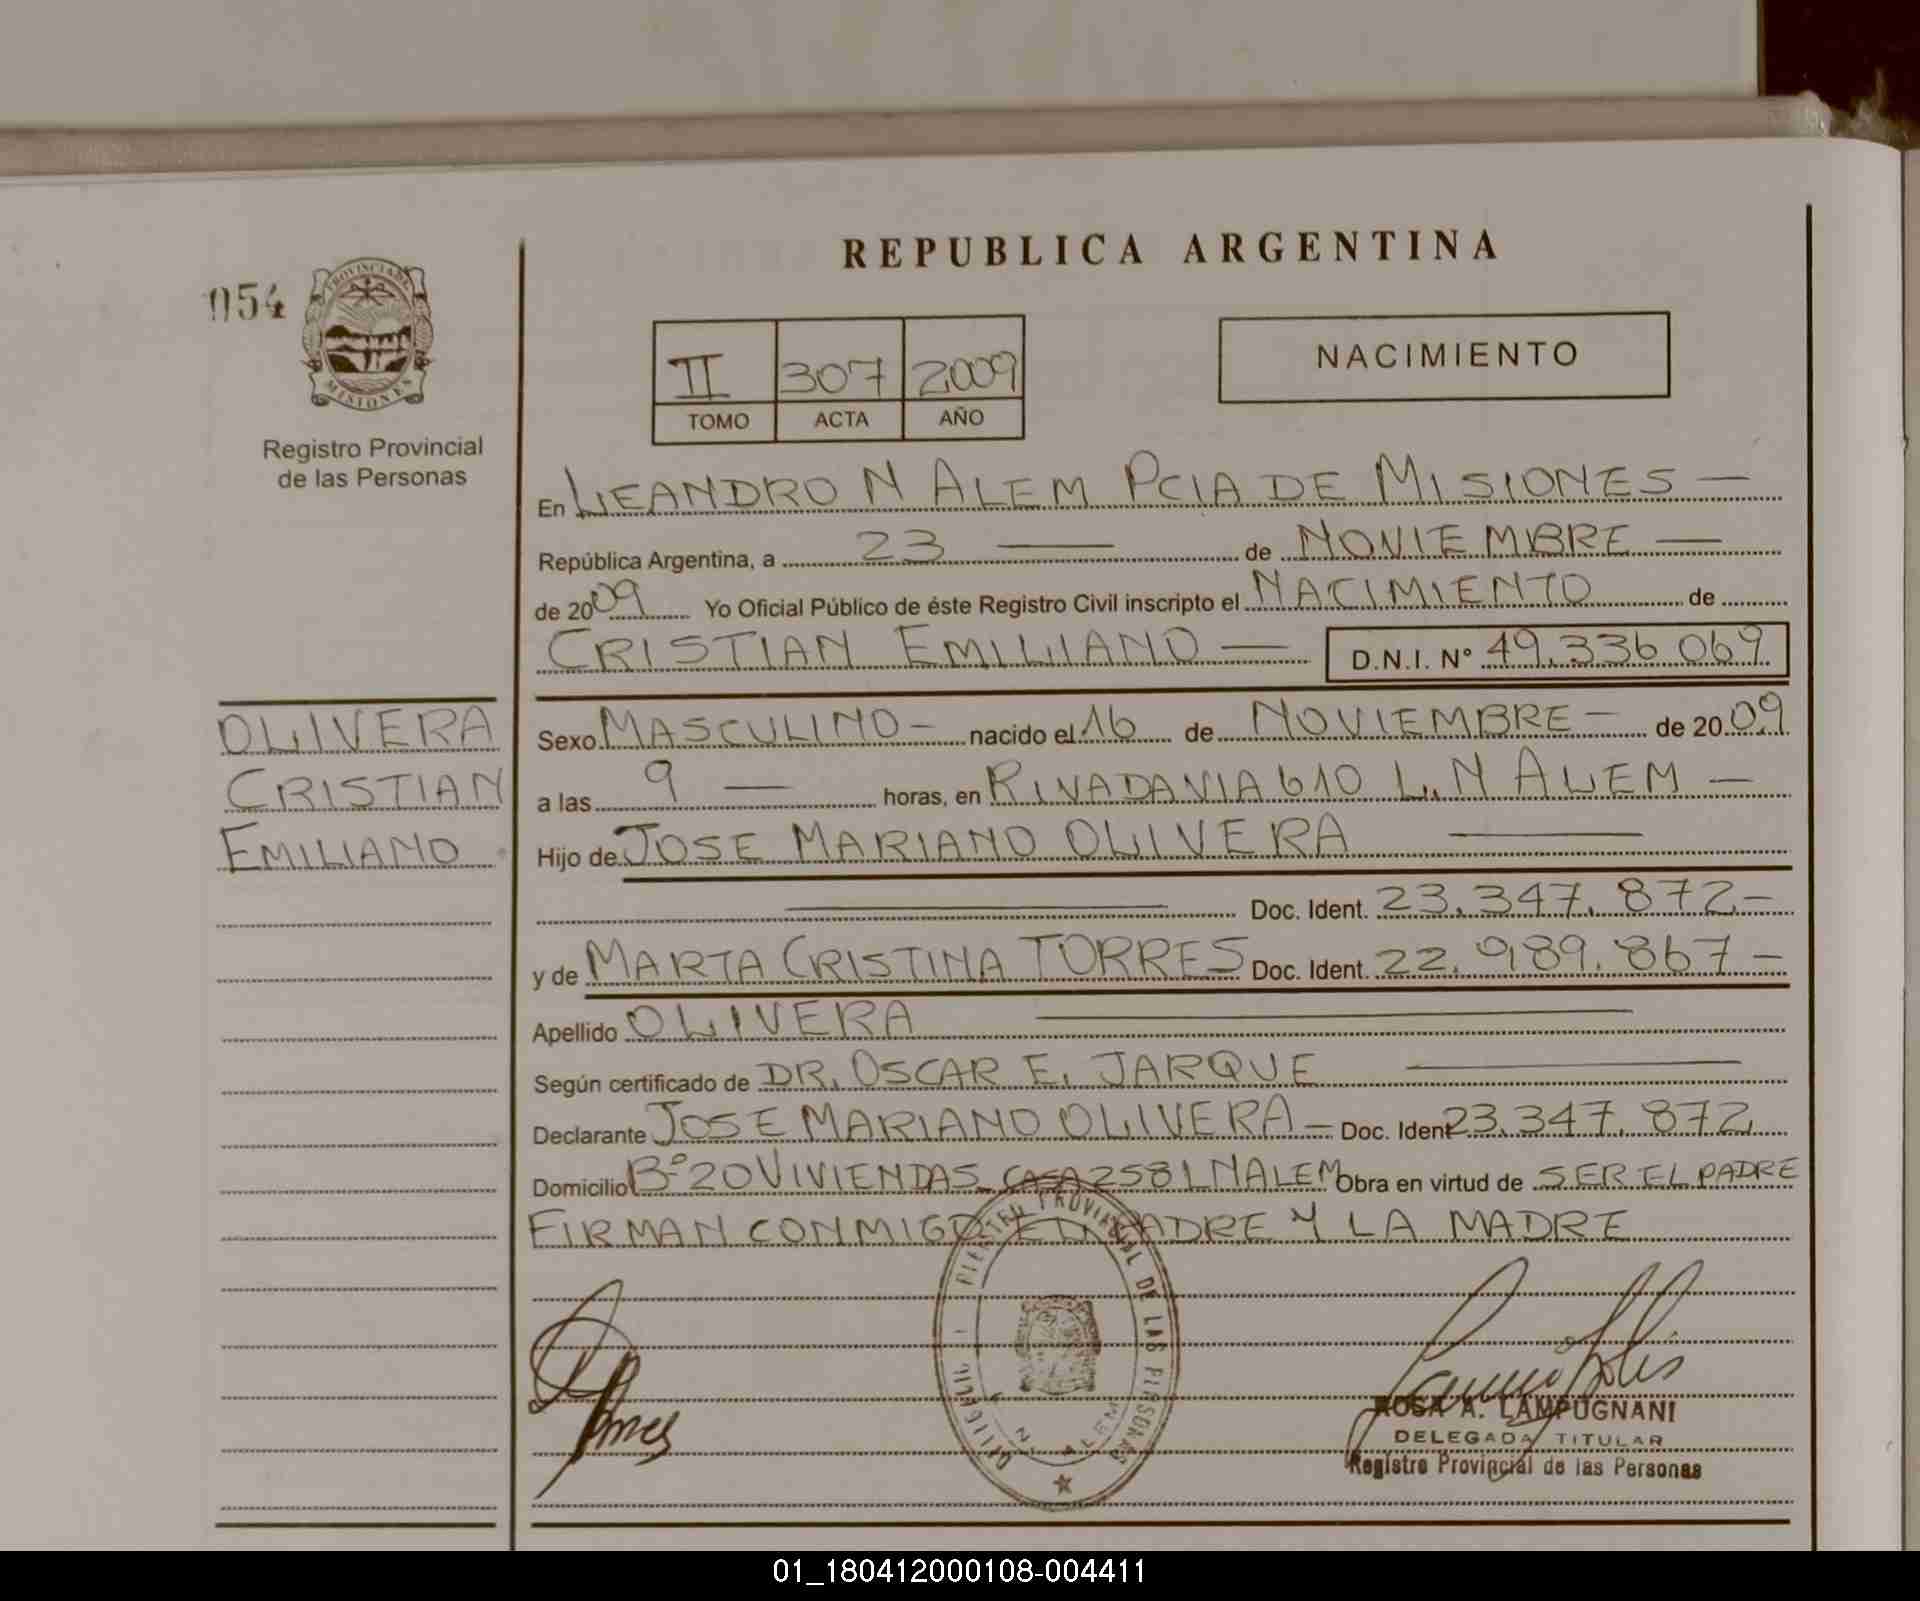 REPUBLICA ARGENTINA
054
PROVINCIA DE
MISIONES
Registro Provincial
de las Personas
II 307 2009
TOMO ACTA AÑO
NACIMIENTO
En LEANDRO N ALEM PCIA DE MISIONES —
República Argentina, a 23 — de NOVIEMBRE —
de 2009 Yo Oficial Público de éste Registro Civil inscripto el NACIMIENTO de
CRISTIAN EMILIANO — D.N.I. N° 49.336.069
OLIVERA
CRISTIAN
EMILIANO
Sexo MASCULINO — nacido el 16 de NOVIEMBRE — de 2009
a las 9 — horas, en RIVADAVIA 610 L.N ALEM —
Hijo de JOSE MARIANO OLIVERA —
— Doc. Ident. 23.347.872 —
y de MARTA CRISTINA TORRES Doc. Ident. 22.989.867 —
Apellido OLIVERA —
Según certificado de DR. OSCAR E. JARQUE —
Declarante JOSE MARIANO OLIVERA — Doc. Ident 23.347.872
Domicilio B° 20 VIVIENDAS CASA 258 L N ALEM Obra en virtud de SER EL PADRE
FIRMAN CONMIGO EL PADRE Y LA MADRE
PROVINCIAL DE LAS PERSONAS
N. ALEM
ROSA A. LAMPUGNANI
DELEGADA TITULAR
Registro Provincial de las Personas
01_180412000108-004411